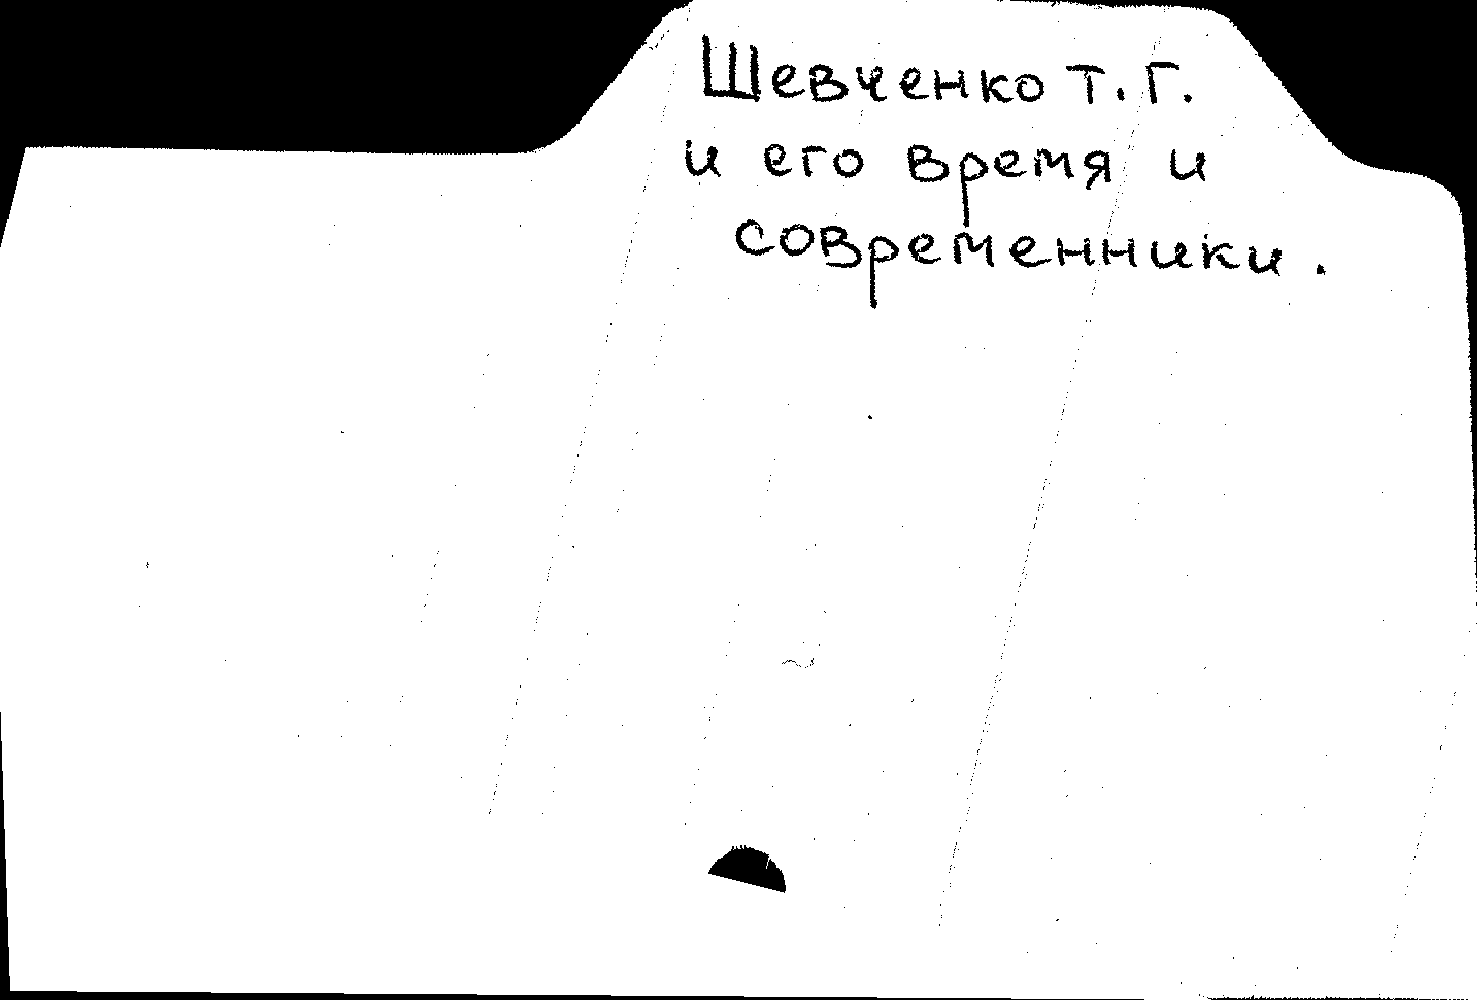 Шевченко Т. Г.
и его время и
современники.